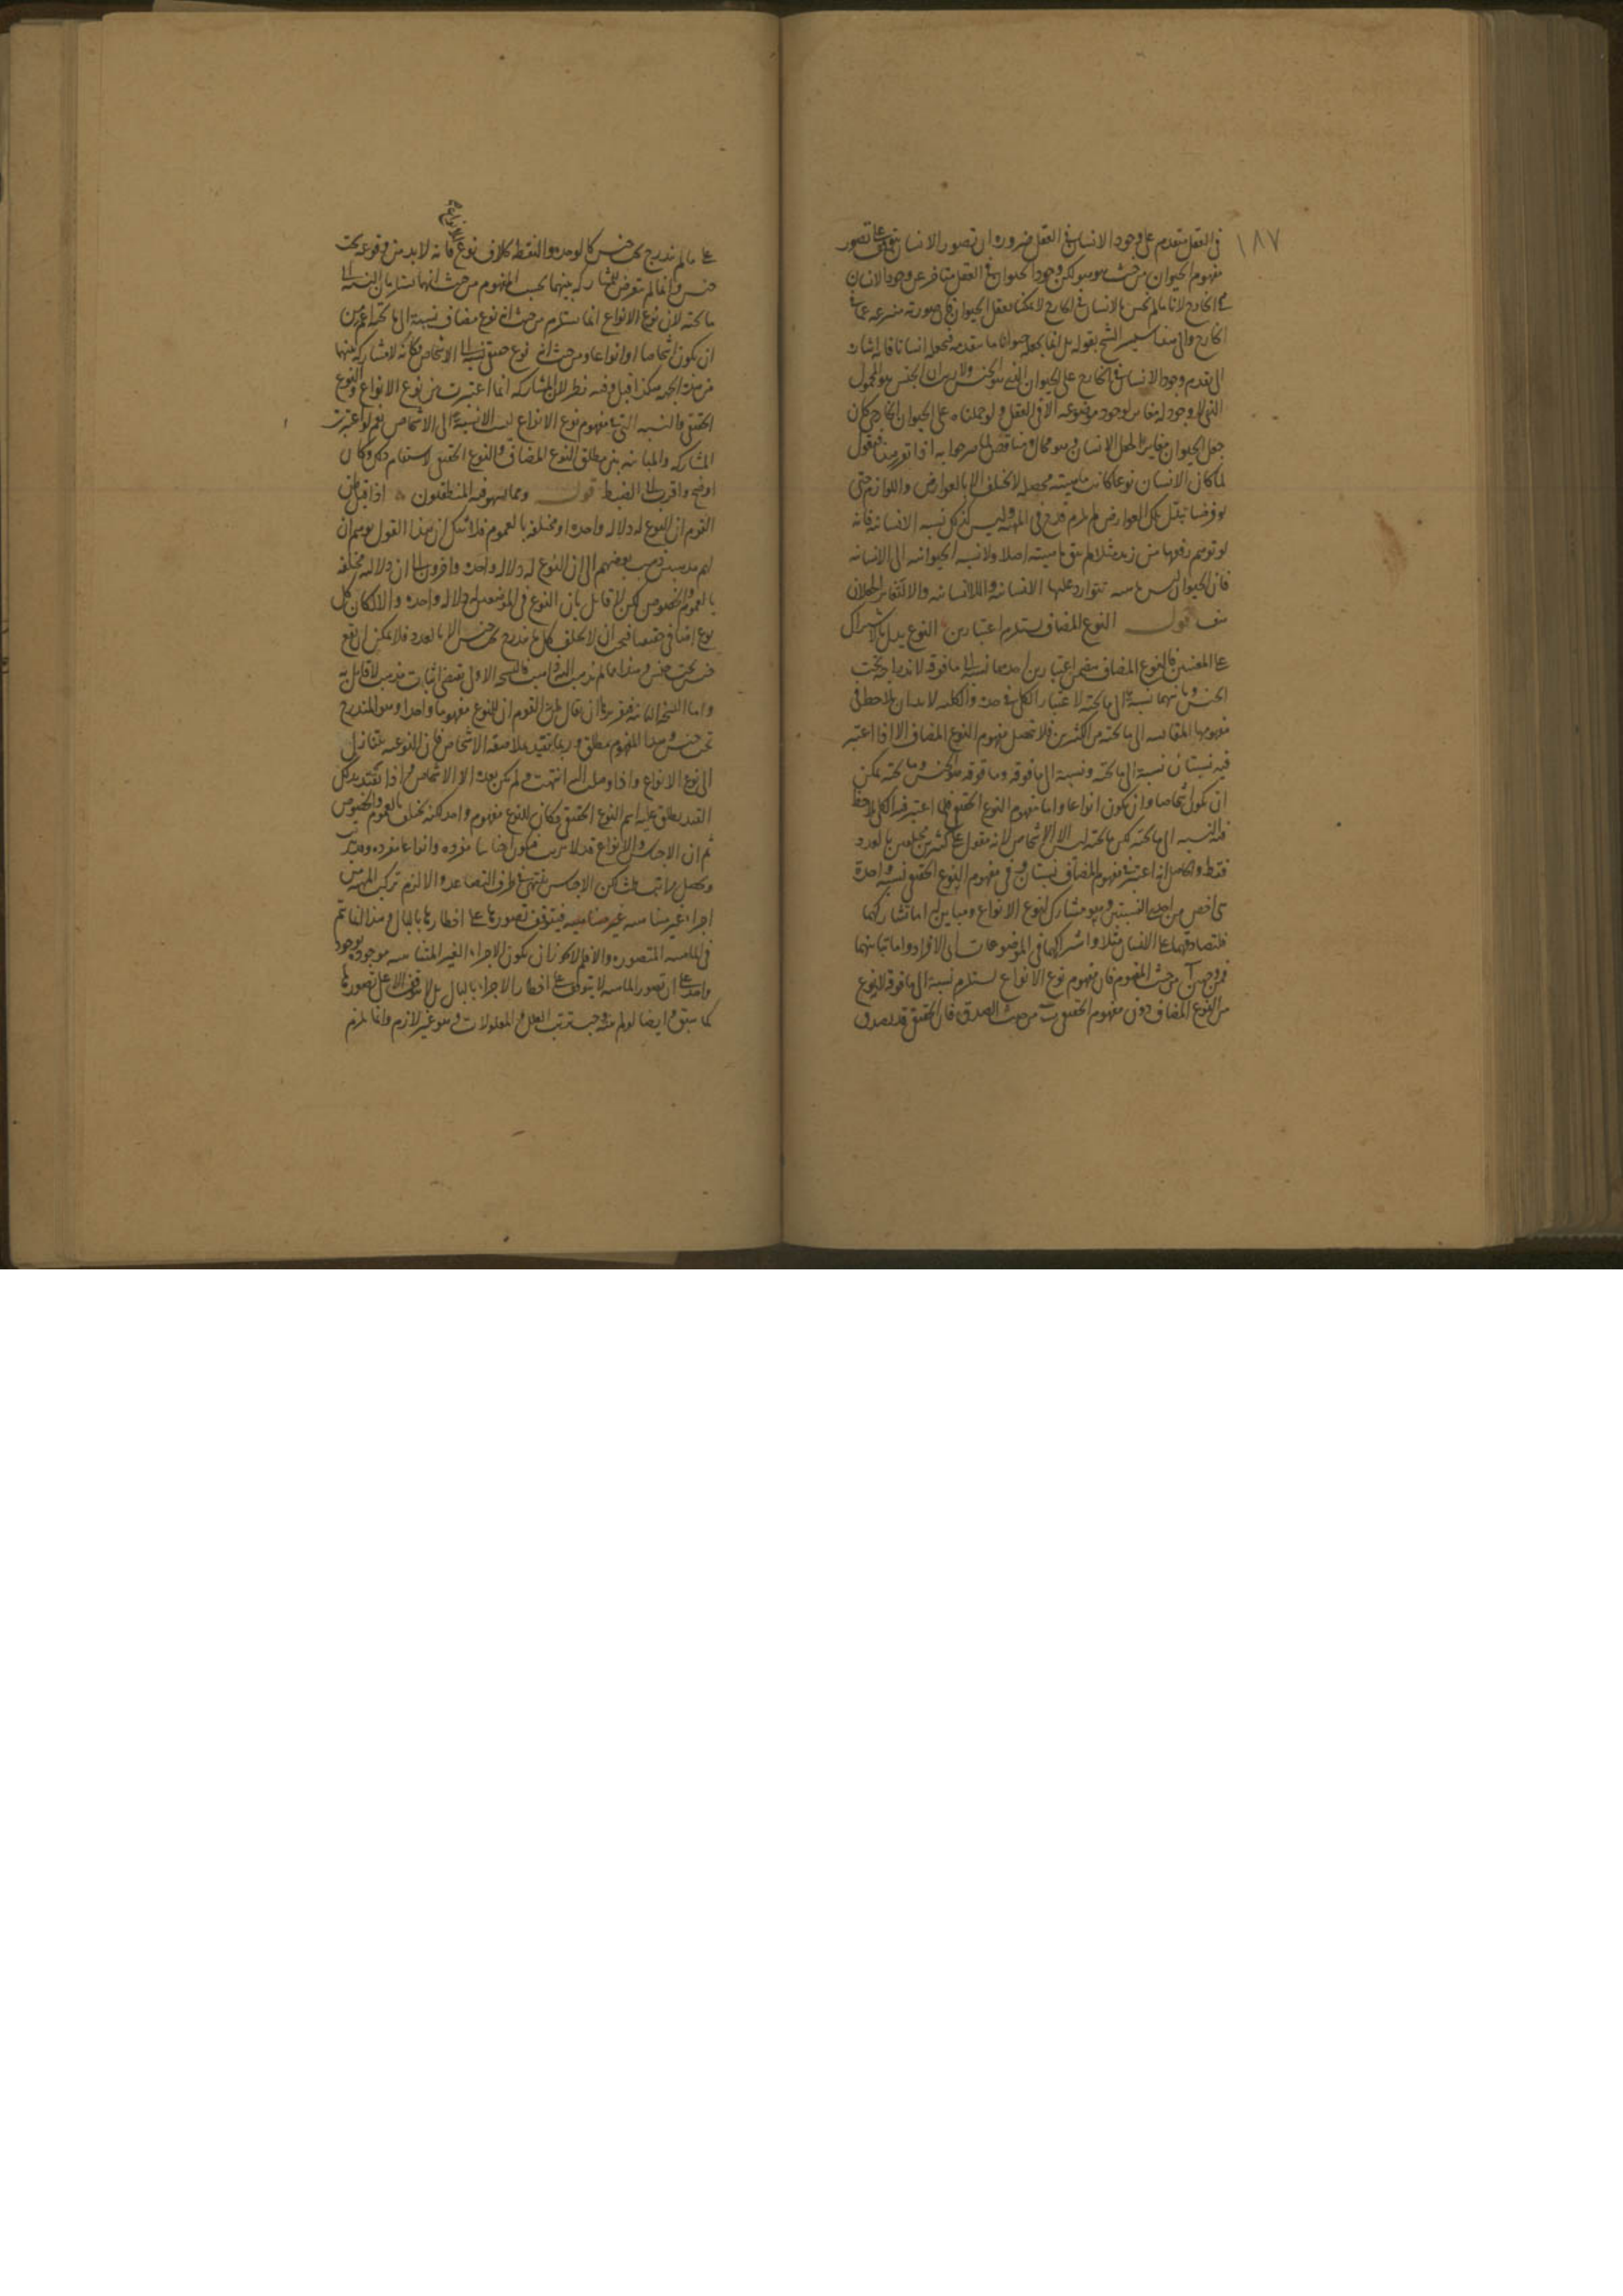 ١٨٧
في العقل متقدم على وجود الانسان في العقل ضرورة ان تصور الانسان يتوقف على تصور
مفهوم الحيوان من حيث هو هو لكن وجود الحيوان في العقل متأخر عن وجود الانسان
في الخارج لانا ما لم نحس بالانسان في الخارج لا يمكننا تعقل الحيوان فان صورته منتزعة عما في
الخارج والى هذا يشير الشيخ بقوله بل انما يجعله حيوانا ما يتقدمه فيجعله انسانا فانه اشار
الى تقدم وجود الانسان في الخارج على الحيوان الذي هو الجنس ولا ريب ان الجنس هو المحمول
الذي لا وجود له مغاير لوجود موضوعه الا في العقل ولو حملناه على الحيوان الخارجي كان
جعل الحيوان مغايرا لجعل الانسان وهو محال ومناقض لما صرحوا به اذا تقرر هذا فنقول
لما كان الانسان نوعا كانت ماهيته محصلة لا تختلف الا بالعوارض واللوازم حتى
لو فرضنا تبدل تلك العوارض لم يلزم قدح في الماهية وليس كذلك نسبة الانسانية فانه
لو توهم رفعها من زيد مثلا لم يبق ماهيته اصلا ولا نسبة الحيوانية الى الانسانية
فان الحيوان ليس ماهية تتوارد عليها الانسانية واللاانسانية والا لتغاير الجعلان
هف قول النوع المضاف يستلزم اعتبارين النوع يدل بالاشتراك
على المعنيين فالنوع المضاف يتضمن اعتبارين احدهما نسبة الى ما فوقه لاندراجه تحت
الجنس وثانيهما نسبة الى ما تحته لاعتبار الكلي في حده والكلية لا بد ان يلاحظ في
مفهومها المقايسة الى ما تحته من الكثيرين فلا تحصل مفهوم النوع المضاف الا اذا اعتبر
فيه نسبتان نسبة الى ما تحته ونسبة الى ما فوقه وما فوقه هو الجنس وما تحته يمكن
ان يكون اشخاصا وان يكون انواعا واما مفهوم النوع الحقيقي فلما اعتبر فيه الكلي يلاحظ
فيه النسبة الى ما تحته لكن ما تحته ليس الا الاشخاص لانه مقول على كثيرين مختلفين بالعدد
فقط والحاصل انه اعتبر في مفهوم المضاف نسبتان وفي مفهوم النوع الحقيقي نسبة واحدة
هي اخص من احدى النسبتين وهو مشارك لنوع الانواع ومباين له اما تشاركهما
فلتصادقهما على الانسان مثلا واشتراكهما في الموضوعات اي الافراد واما تباينهما
فمن وجهين آ من حيث المفهوم فان مفهوم نوع الانواع يستلزم نسبة الى ما فوقه لانه نوع
من النوع المضاف دون مفهوم الحقيقي ب من حيث الصدق فان الحقيقي قد يصدق
على ما لم يندرج تحت جنس كالوحدة والنقطة بخلاف نوع الانواع فانه لا بد من وقوعه تحت
جنس وانما لم يتعرض للمشاركة بينهما بحسب المفهوم من حيث انهما يستلزمان النسبة الى
ما تحته لان نوع الانواع انما يستلزم من حيث انه نوع مضاف نسبة الى ما تحته اعم من
ان يكون اشخاصا او انواعا ومن حيث انه نوع حقيقي نسبة الى الاشخاص فكأنه لا مشاركة بينهما
من هذه الجهة هكذا قيل وفيه نظر لان المشاركة انما اعتبرت بين نوع الانواع والنوع
الحقيقي والنسبة التي في مفهوم نوع الانواع ليست الا نسبة الى الاشخاص نعم لو اعتبرت
المشاركة والمباينة بين مطلق النوع المضاف والنوع الحقيقي لاستقام ذلك وكان
اوضح واقرب الى الضبط قول ومما يسهو فيه المنطقيون اذا قيل من
القوم ان للنوع له دلالة واحدة او مختلفة بالعموم فلا شك ان هذا القول يوهم ان
لهم مذهبين ذهب بعضهم الى ان النوع له دلالة واحدة واخرون الى ان دلالته مختلفة
بالعموم والخصوص لكن لا قائل بان النوع في الموضعين له دلالة واحدة والا لكان كل
نوع اضافي حقيقيا فيجب ان لا يختلف كل ما يندرج تحت جنس الا بالعدد فلا يمكن ان يقع
جنس تحت جنس وهذا ما لم يذهب اليه ذاهب فالنسخة الاولى تقتضي اثبات مذهب لا قائل به
واما النسخة الثانية فتقريرها ان يقال ظن القوم ان للنوع مفهوما واحدا وهو المندرج
تحت جنس وهذا المفهوم مطلق وربما يتقيد بملاصقة الاشخاص فان النوعية تتنازل
الى نوع الانواع واذا وصلت اليه انتهت ولم يكن بعده الا الاشخاص واذا تقيد بذلك
القيد يطلق عليه اسم النوع الحقيقي فكان للنوع مفهوم واحد لكنه يختلف بالعموم والخصوص
ثم ان الاجناس والانواع قد لا تترتب فيكون اجناسا مفردة وانواعا مفردة وقد تترتب
وتحصل مراتب ثلث لكن الاجناس تنتهي في طرف التصاعد والا لزم تركب الماهية من
اجزاء غير متناهية فيتوقف تصورها على اخطارها بالبال وهذا انما يتم
في الماهية المتصورة والا فلم لا يجوز ان تكون الاجزاء الغير المتناهية موجودة بوجود
واحد على ان تصور الماهية لا يتوقف على اخطار الاجزاء بالبال بل لا يتوقف الا على تصورها
كما سبق وايضا لو لم تنته وجب ترتب العلل والمعلولات وهو غير لازم وانما يلزم